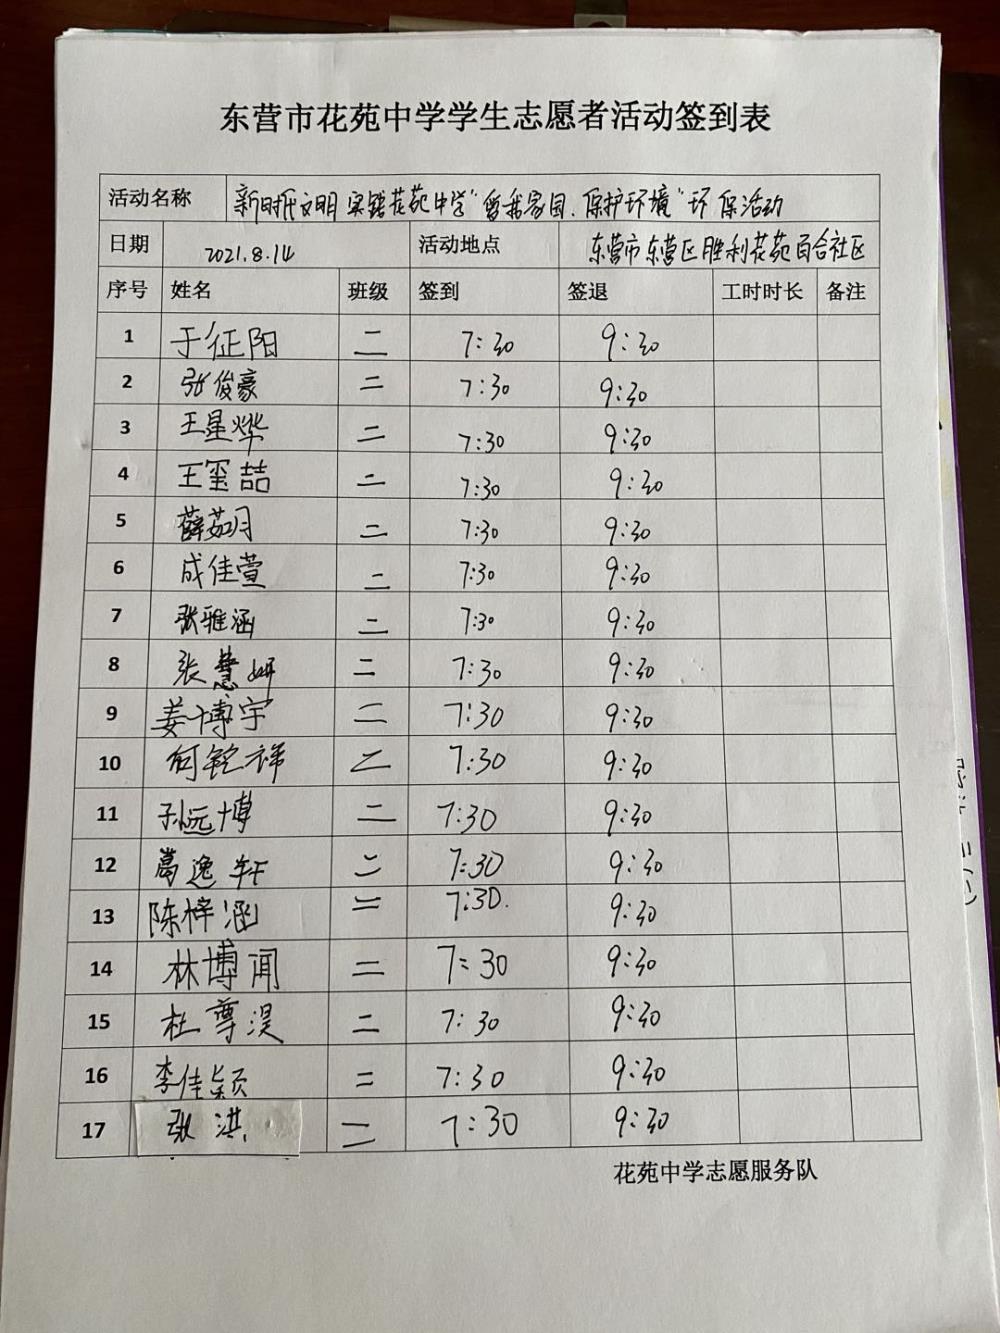 东营市花苑中学学生志愿者活动签到表
活动名称 新时代文明实践花苑中学“爱我家园、保护环境”环保活动
日期 2021.8.14 活动地点 东营市东营区胜利花苑百合社区
序号 姓名 班级 签到 签退 工时时长 备注
1 于征阳 二 7:30 9:30
2 张俊豪 二 7:30 9:30
3 王星烨 二 7:30 9:30
4 王玺喆 二 7:30 9:30
5 薛茹月 二 7:30 9:30
6 成佳萱 二 7:30 9:30
7 张雅涵 二 7:30 9:30
8 张慧妍 二 7:30 9:30
9 姜博宇 二 7:30 9:30
10 何铭祎 二 7:30 9:30
11 孙远博 二 7:30 9:30
12 葛逸轩 二 7:30 9:30
13 陈梓涵 二 7:30. 9:30
14 林博闻 二 7:30 9:30
15 杜尊淏 二 7:30 9:30
16 李佳颖 二 7:30 9:30
17 张洪 二 7:30 9:30
花苑中学志愿服务队